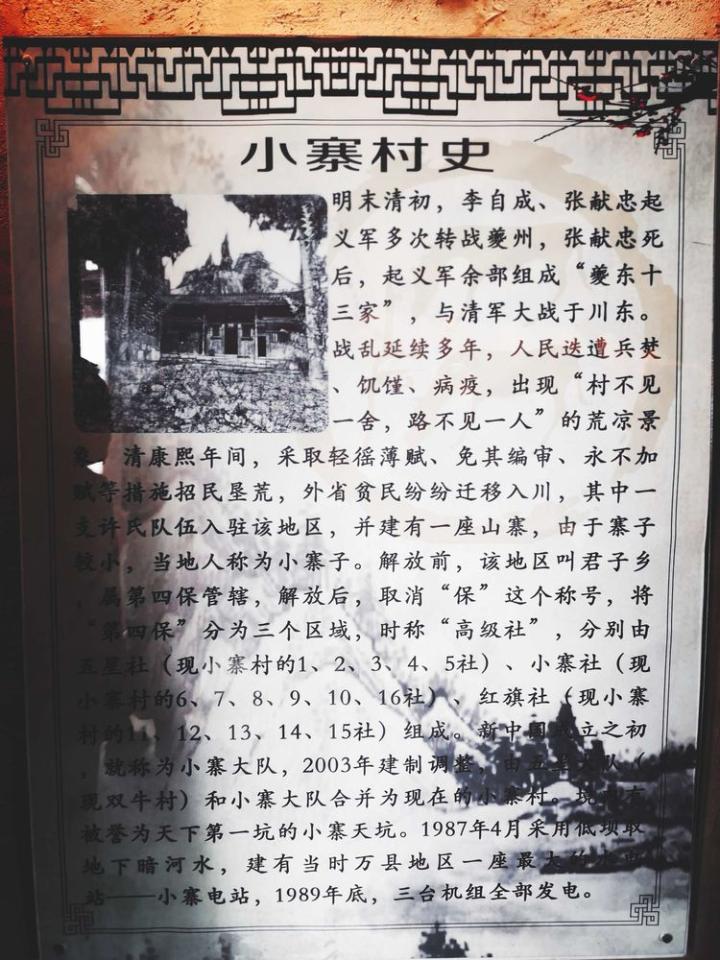 小寨村史
明末清初，李自成、张献忠起
义军多次转战夔州，张献忠死
后，起义军余部组成“夔东十
三家”，与清军大战于川东。
战乱延续多年，人民迭遭兵焚
、饥馑、病疫，出现“村不见
一舍，路不见一人”的荒凉景
象。清康熙年间，采取轻徭薄赋、免其编审、永不加
赋等措施招民垦荒，外省贫民纷纷迁移入川，其中一
支许氏队伍入驻该地区，并建有一座山寨，由于寨子
较小，当地人称为小寨子。解放前，该地区叫君子乡
，属第四保管辖，解放后，取消“保”这个称号，将
“第四保”分为三个区域，时称“高级社”，分别由
五星社（现小寨村的1、2、3、4、5社）、小寨社（现
小寨村的6、7、8、9、10、16社）、红旗社（现小寨
村的11、12、13、14、15社）组成。新中国成立之初
，就称为小寨大队，2003年建制调整，由五星大队（
现双牛村）和小寨大队合并为现在的小寨村。境内有
被誉为天下第一坑的小寨天坑。1987年4月采用低坝取
地下暗河水，建有当时万县地区一座最大的水电
站——小寨电站，1989年底，三台机组全部发电。